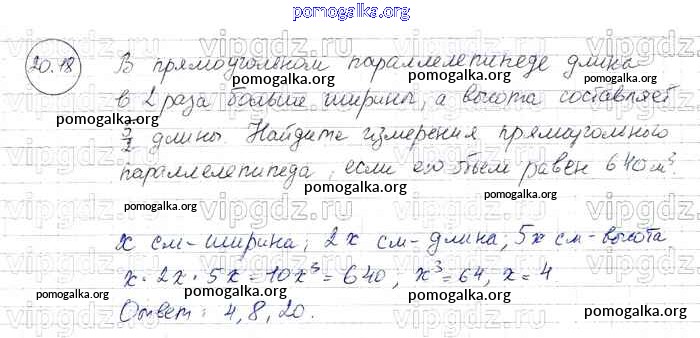 pomogalka.org
20.18 В прямоугольном параллелепипеде длина
pomogalka.org pomogalka.org
в 2 раза больше ширины, а высота составляет
pomogalka.org pomogalka.org pomogalka.org
5/2 длины. Найдите измерения прямоугольного
параллелепипеда, если его объем равен 640м³.
pomogalka.org
vipgdz.ru vipgdz.ru vipgdz.ru
x см-ширина; 2x см-длина; 5x см-высота
pomogalka.org pomogalka.org
x·2x·5x=10x³=640; x³=64, x=4
pomogalka.org pomogalka.org pomogalka.org
Ответ: 4, 8, 20.
pomogalka.org